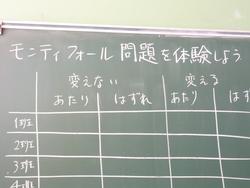 モンティフォール問題を体験しよう
変えない 変える
あたり はずれ あたり はずれ
1班
2班
3班
4班